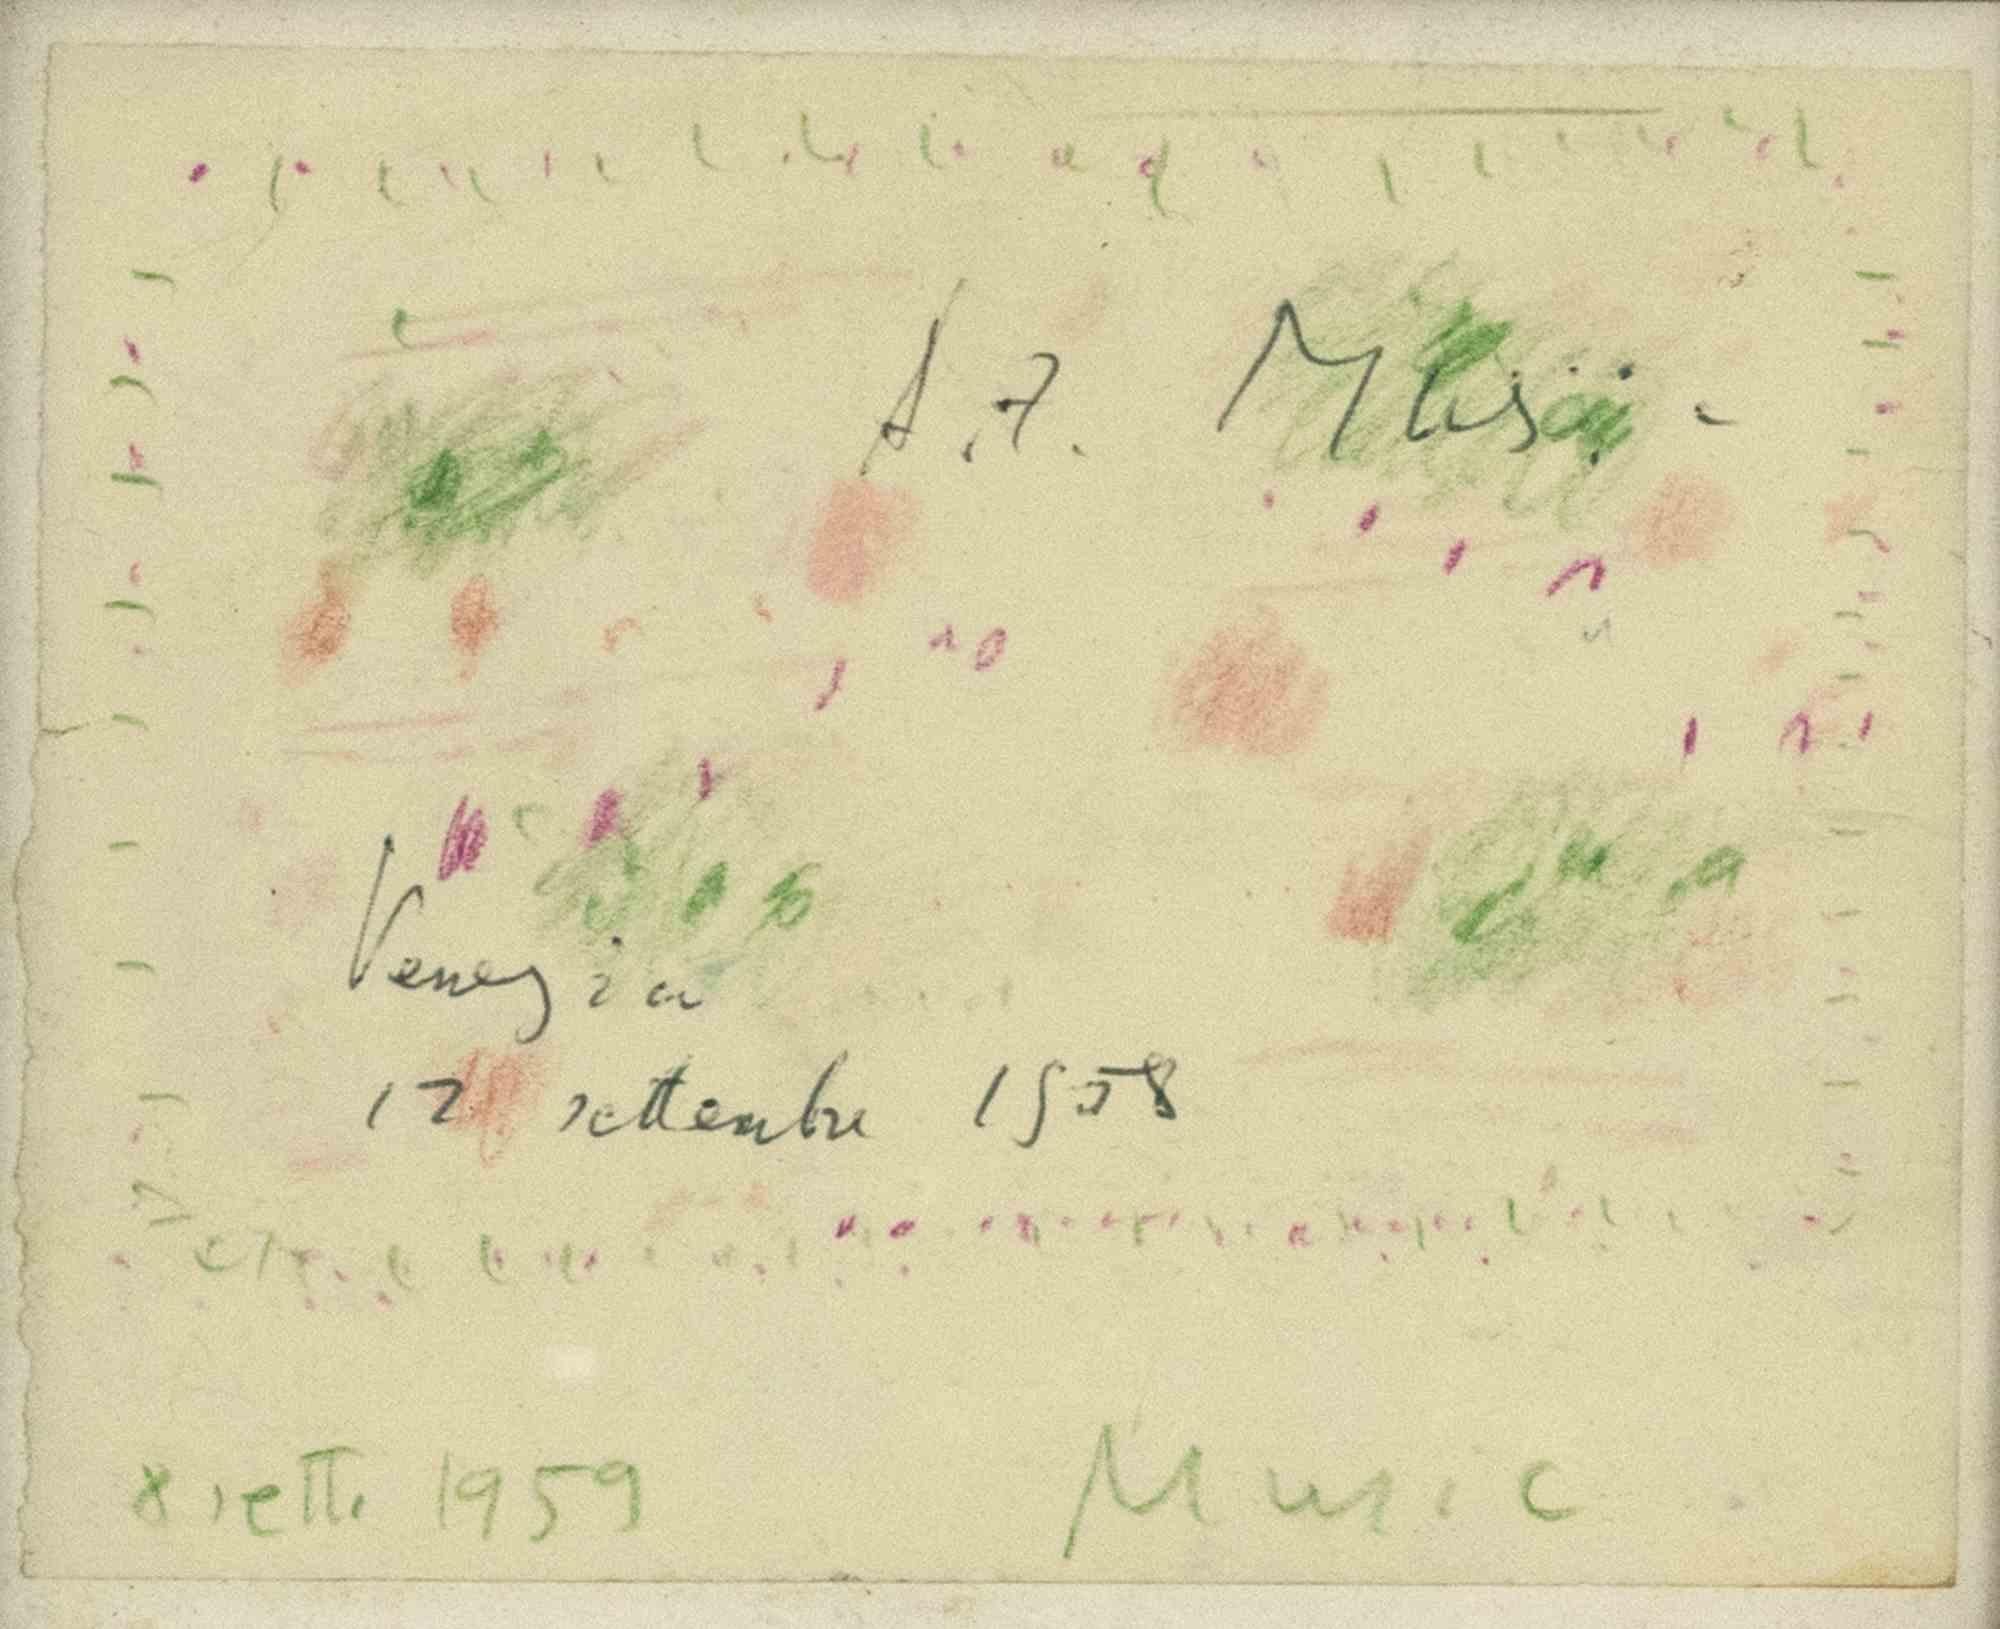 Venezia
12 settembre 1958
8 sett. 1959 Music